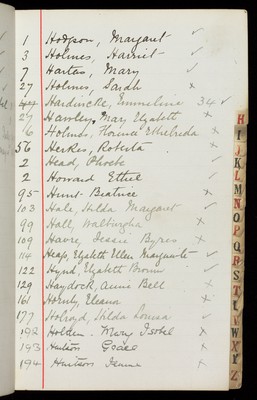 1 Hodgson, Margaret ✓
3 Holmes, Harriet ✓
7 Hartas, Mary ✓
27 Holmes, Sarah x
Hardcastle, Emmeline 34 ✓
27 Hawley, Mary Elizabeth x
6 Holmes, Florence Ethelreda x
56 Herkes, Roberta x
2 Head, Phoebe ✓
2 Howard Ethel ✓
95 Hunt Beatrice x
103 Hale, Hilda Margaret ✓
99 Hall, Walburgha x
109 Havre, Jessie Byres x
114 Heap, Elizabeth Ellen Marguerite ✓
122 Hynd, Elizabeth ✓
129 Haydock, Annie Bell x
161 Hornby, Eleanor x
177 Holroyd, Hilda Louisa ✓
192 Holden Mary Isobel x
193 Grace x
194 x
H
I
J
K
L
M
N
O
P
Q
R
S
T
U
V
W
X
Y
Z